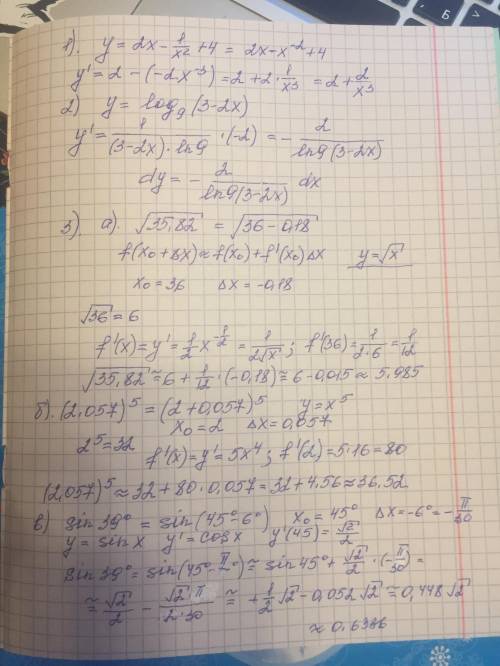 1). y = 2x - 1/x² + 4 = 2x - x⁻² + 4
y' = 2 - (-2x⁻³) = 2 + 2·1/x³ = 2 + 2/x³
2) y = log₉(3-2x)
y' = 1/((3-2x)·ln9) · (-2) = - 2/(ln9(3-2x))
dy = - 2/(ln9(3-2x)) dx
3). а). √35,82 = √36-0,18
f(x₀+Δx) ≈ f(x₀) + f'(x₀)Δx y = √x
x₀ = 36 Δx = -0,18
√36 = 6
f'(x) = y' = 1/2 x^(-1/2) = 1/(2√x); f'(36) = 1/(2·6) = 1/12
√35,82 ≅ 6 + 1/12·(-0,18) ≅ 6 - 0,015 ≈ 5.985
б). (2,057)⁵ = (2+0,057)⁵ y = x⁵
x₀ = 2 Δx = 0,057
2⁵ = 32 f'(x) = y' = 5x⁴; f'(2) = 5·16 = 80
(2,057)⁵ ≈ 32 + 80·0,057 = 32 + 4,56 ≈ 36,52
в) sin39° = sin(45°-6°) x₀ = 45° Δx = -6° = -π/30
y = sinx y' = cosx y'(45) = √2/2
sin39° = sin(45°- π/30°) ≅ sin45° + √2/2·(-π/30) =
≅ √2/2 - √2·π/(2·30) ≅ +1/2√2 - 0,052√2 ≅ 0,448√2
≈ 0.6336